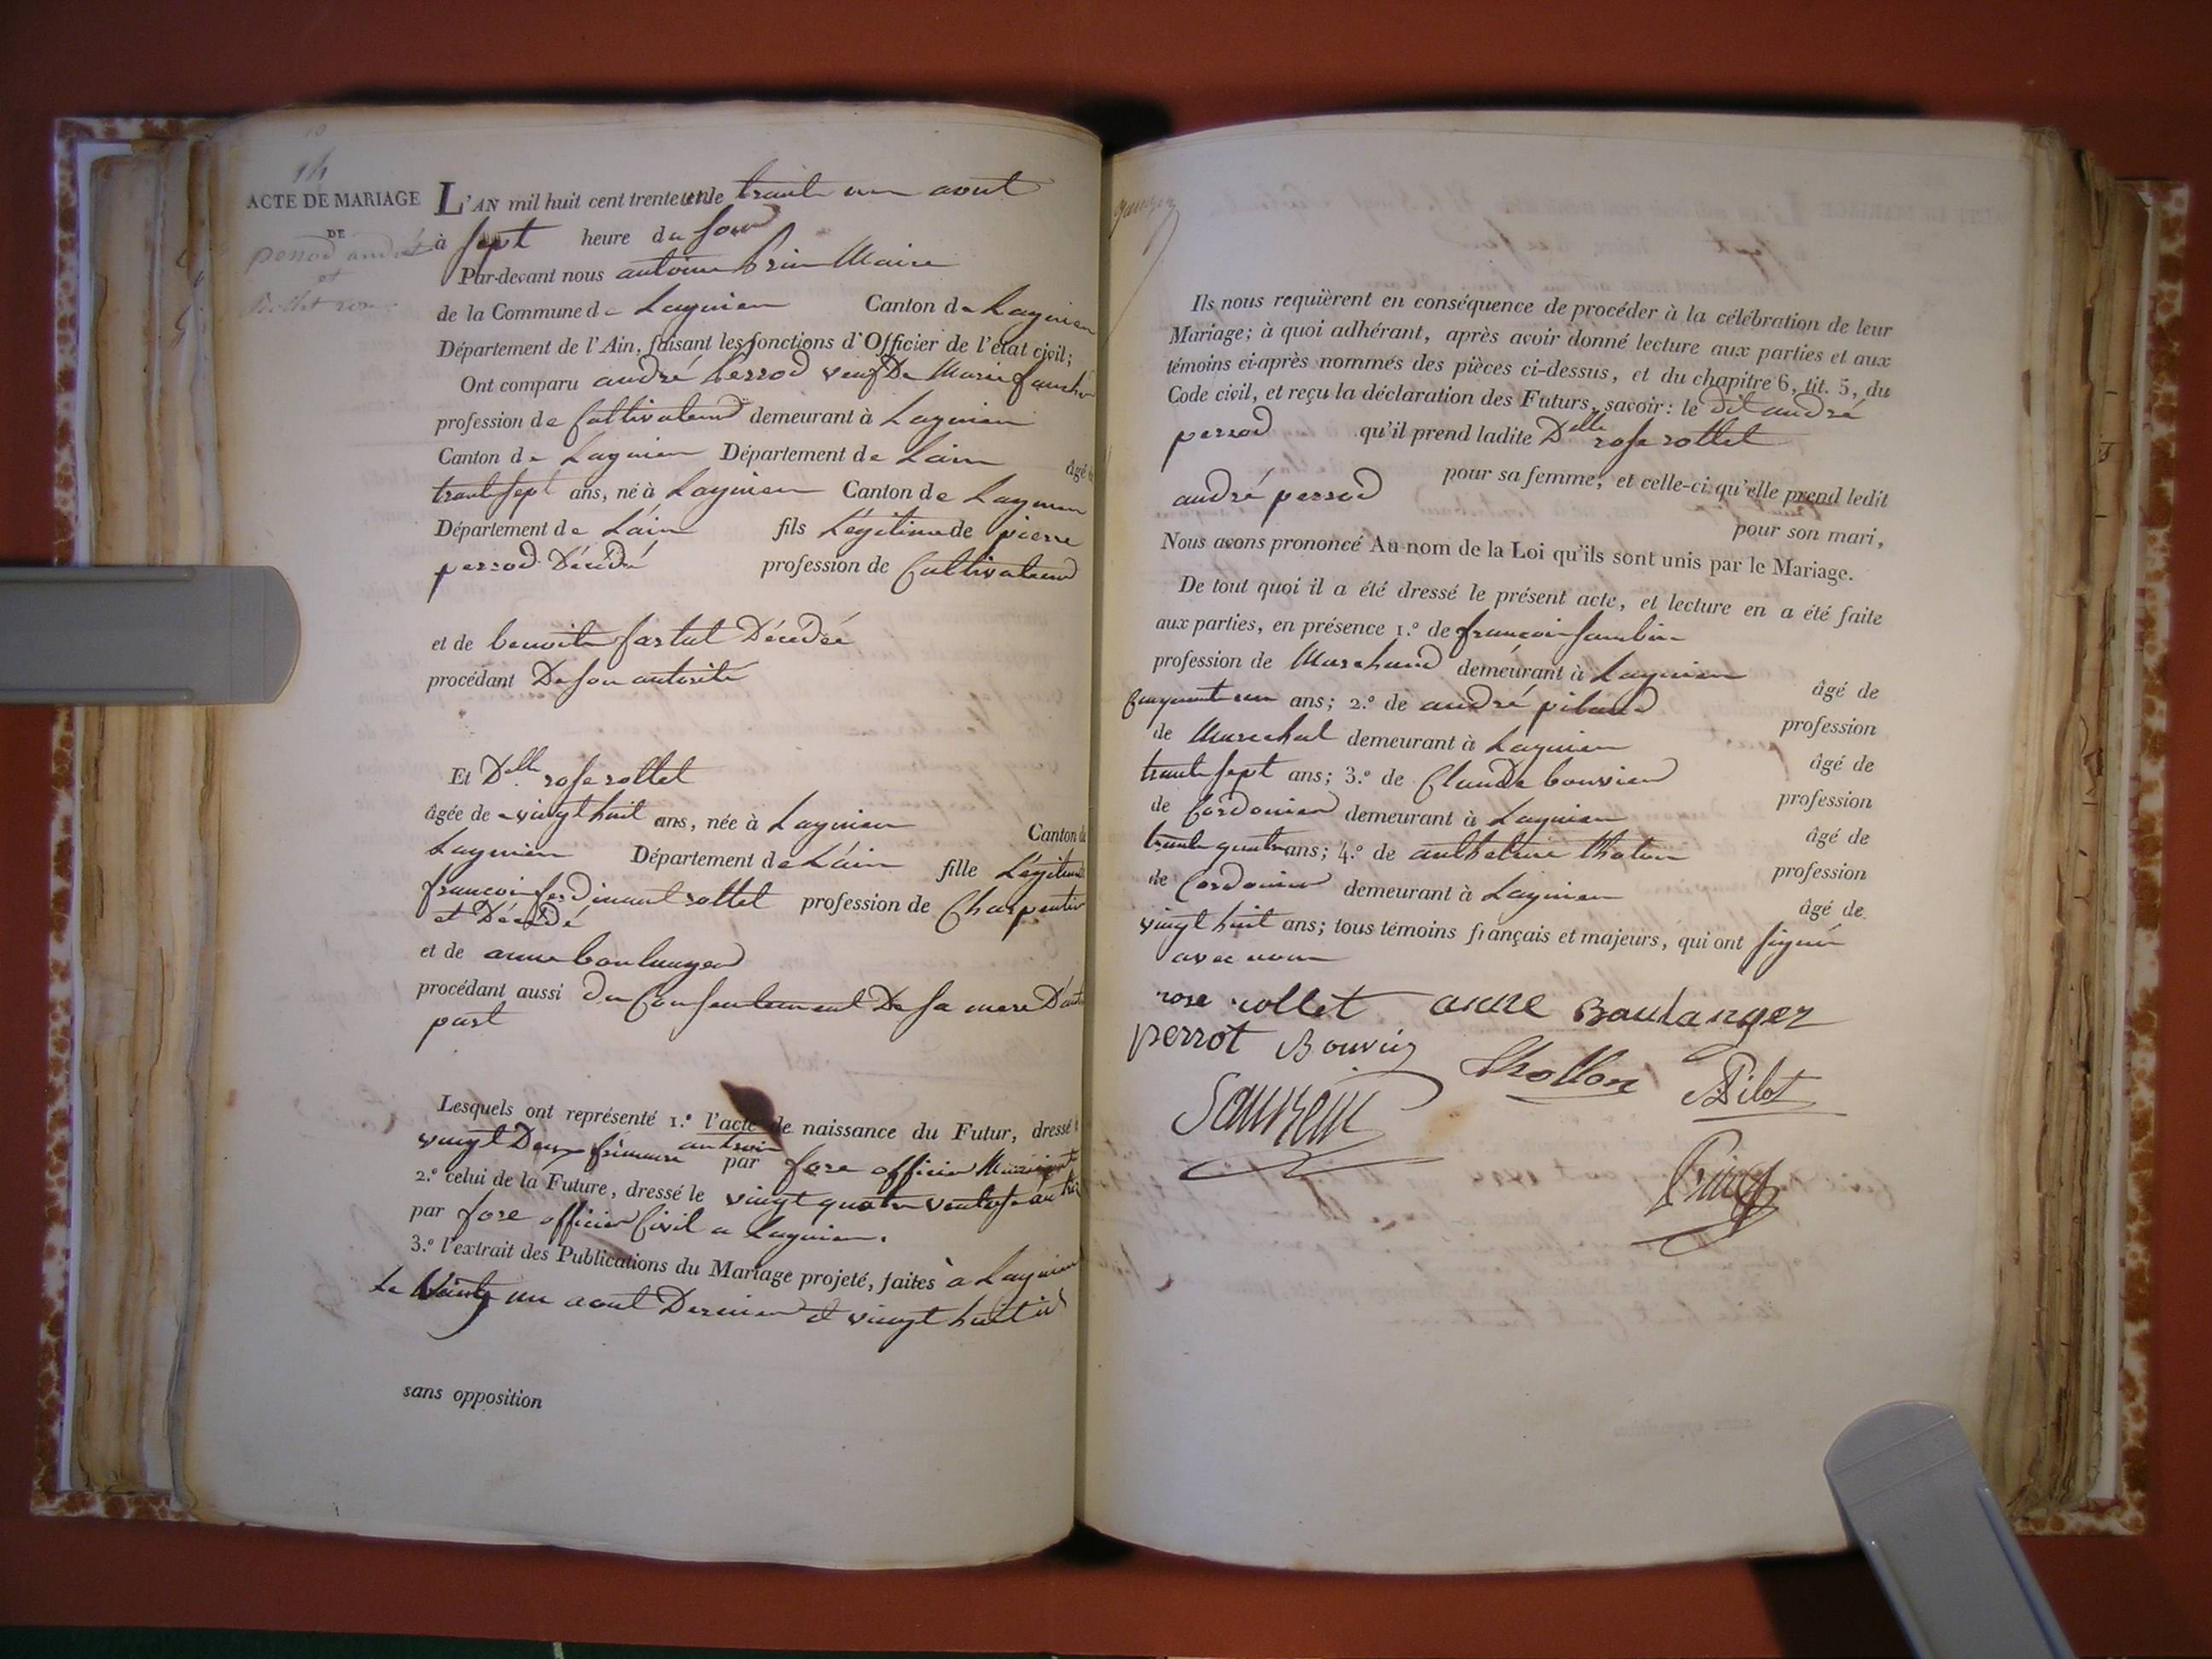 14
ACTE DE MARIAGE
DE
perrod andré
et
Rollet rose
L'AN mil huit cent trente un le trante un aout
à sept heure du soir
Par-devant nous antoine Maire
de la Commune de Lagnieu Canton de Lagnieu
Département de l'Ain, faisant les fonctions d'Officier de l'état civil;
Ont comparu andré perrod veuf De Marie
profession de Cultivateur demeurant à Lagnieu
Canton de Lagnieu Département de Lain âgé de
trante sept ans, né à Lagnieu Canton de Lagnieu
Département de Lain fils Légitime de pierre
perrod Décédé profession de Cultivateur
et de benoite Décedée
procédant De son autorité
Et Delle rose rollet
âgée de vingt huit ans, née à Lagnieu Canton de
Lagnieu Département de Lain fille Légitime
francois ferdinant rollet profession de Charpentier
et Décédé
et de anne boulanger
procédant aussi du Consentement De sa mere D'autre
part
Lesquels ont représenté 1.º l'acte de naissance du Futur, dressé
vingt Deux frimaire an trois par fore officier
2.º celui de la Future, dressé le vingt quatre ventose an
par fore officier Civil a Lagnieu.
3.º l'extrait des Publications du Mariage projeté, faites à Lagnieu
Le Vingt un aout Dernier et vingt huit
sans opposition
Ils nous requièrent en conséquence de procéder à la célébration de leur
Mariage; à quoi adhérant, après avoir donné lecture aux parties et aux
témoins ci-après nommés des pièces ci-dessus, et du chapitre 6, tit. 5, du
Code civil, et reçu la déclaration des Futurs, savoir: le dit andré
perrod qu'il prend ladite Delle rose rollet
pour sa femme, et celle-ci qu'elle prend ledit
andré perrod pour son mari,
Nous avons prononcé Au nom de la Loi qu'ils sont unis par le Mariage.
De tout quoi il a été dressé le présent acte, et lecture en a été faite
aux parties, en présence 1.º de francois
profession de Marchand demeurant à Lagnieu âgé de
ans; 2.º de andré profession
de Marechal demeurant à Lagnieu âgé de
trante sept ans; 3.º de Claude bouvier profession
de Cordonier demeurant à Lagnieu âgé de
trante quatre ans; 4.º de anthelme profession
de Cordonier demeurant à Lagnieu âgé de
vingt huit ans; tous témoins français et majeurs, qui ont signé
avec nous
rose rollet anne Boulanger
perrot Bouvier Thollon Pilot